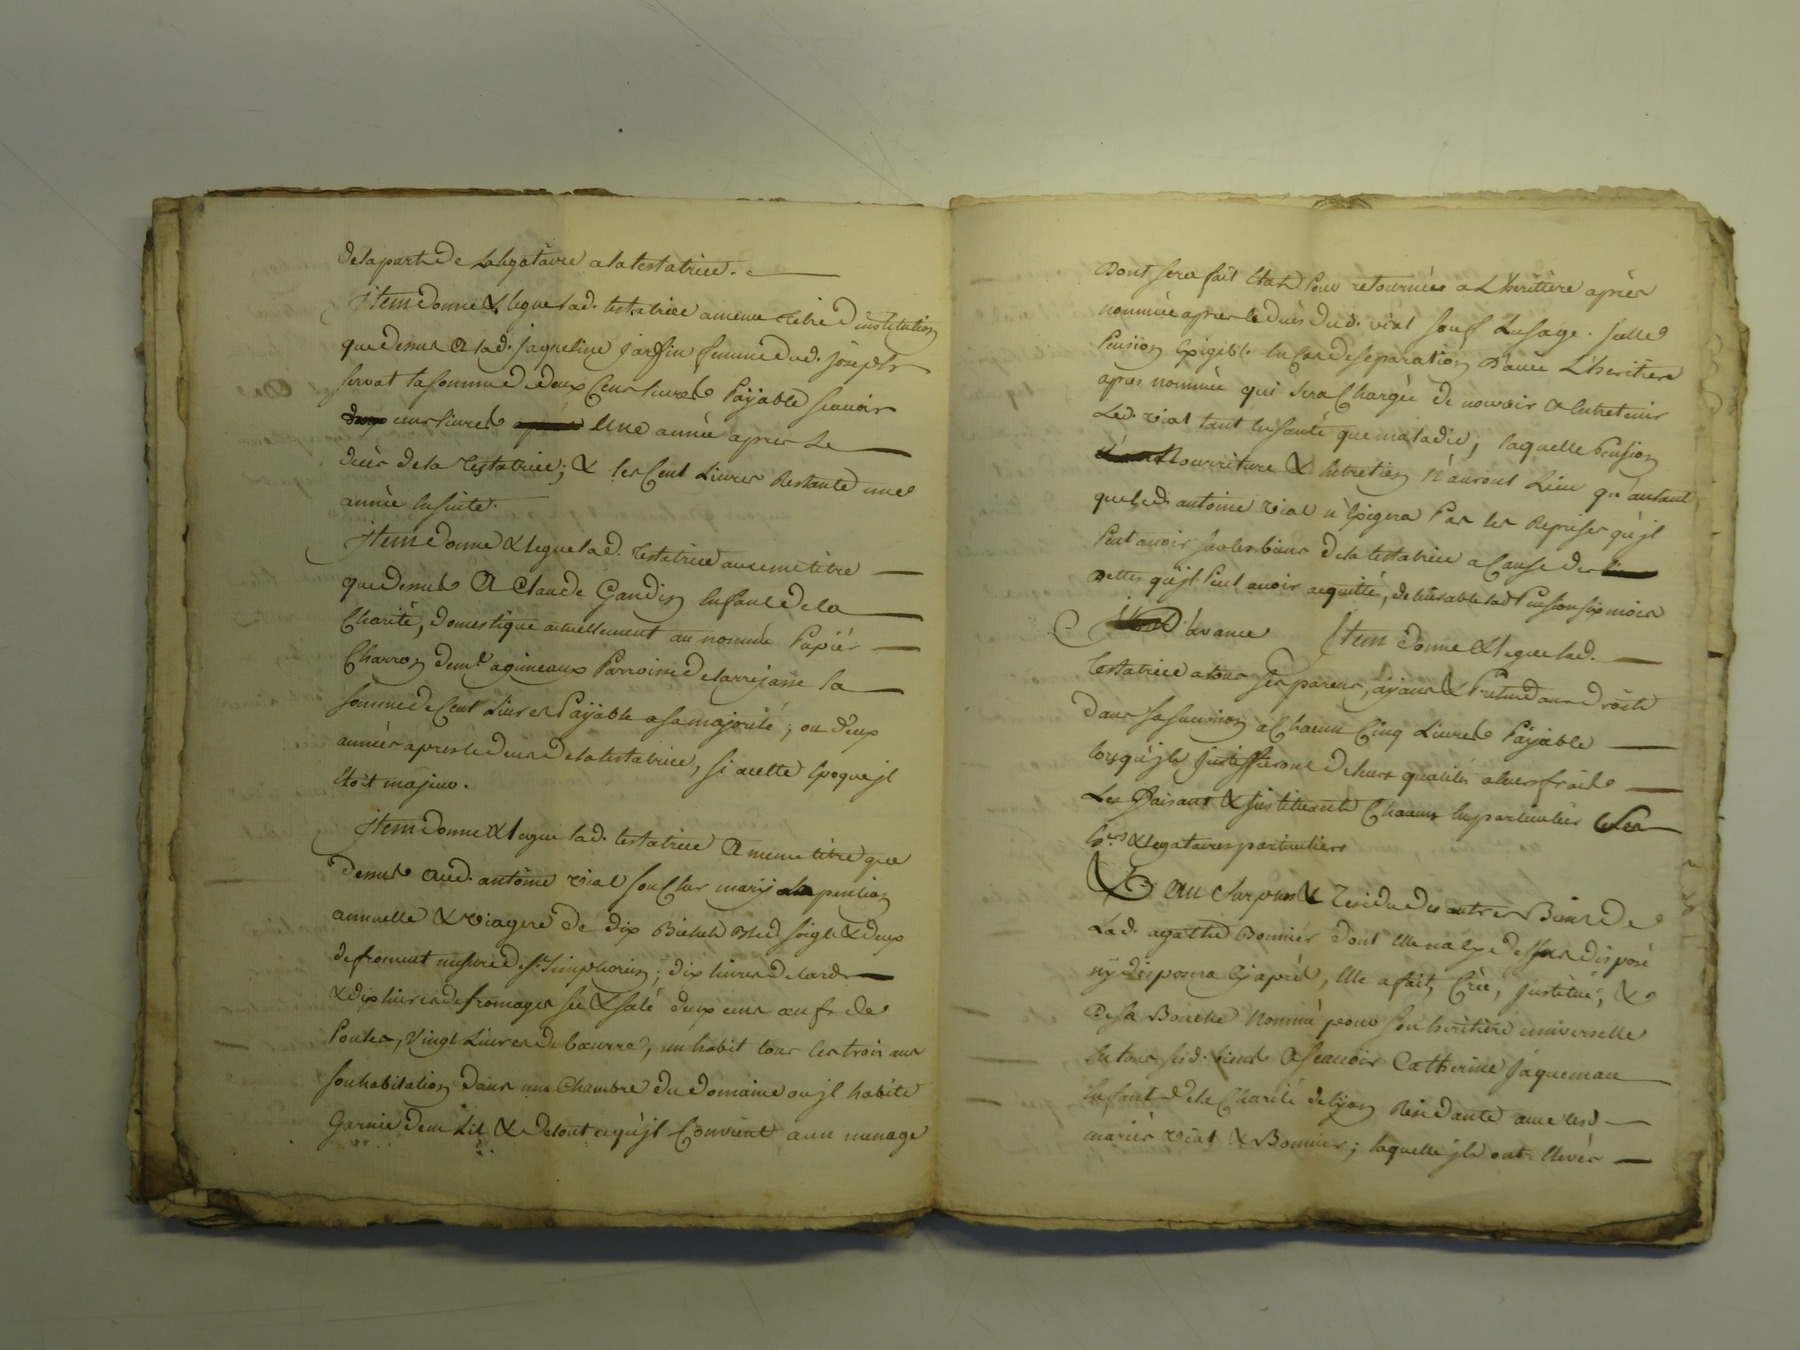 dela part de La legataire a la testatrice.
Item donne & legue lad. testatrice a meme titre d'institution
que dessus A lad. jaqueline jarsin femme dud. joseph
servat la somme de deux Cens livres Payable scauoir
cens livres Une année apres Le
decès de la testatrice; & les Cent Livres Restante une
année ensuite.
Item donne & legue lad. testatrice au meme titre
que dessus A Claude Gandin enfant de la
Charité, domestique actuellement au nommé Papier
Charron demt. agimeaux Parroisse de larrajasse la
somme de Cent Livres Payable a sa majorité, ou deux
années apres le deces de la testatrice, si a cette Epoque jl
étoit majeur.
Item donne & legue lad. testatrice A meme titre que
dessus Aud. antoine vial son Cher mary la pention
annuelle & viagere de dix Bichets Bled seigle & deux
de froment mesure de st. Simphorien; dix livres de lard
& dix livres de fromages sec & salé deux cens œufs de
Poules, Vingt Livres de bœurre, un habit tous les trois ans
son habitation dans une Chambre du domaine ou jl habite
Garnie d'un Lit & de tout ce qu'jl Convient a un menage
Dont sera fait Etat Pour retournées a L'heritiere après
nommée apres le decès dud. vial sauf Lusage. jcelle
Pension Exigible En Cas de separation D'avec L'heritiere
apres nommée qui sera Chargée de nourrir & Entretenir
Led. vial tant En santé que maladie; laquelle Pension
Nourriture & Entretien N'auront Lieu qu'autant
que led. antoine vial n'Exigera Pas les Reprises qu'jl
Peut avoir sur les biens de la testatrice a Cause des
Dettes qu'jl Peut avoir acquitté, delivrable lad Pension six mois
D'avance Item donne & legue lad.
testatrice a tous ses parens, ayans & Pretendans droits
dans sa succession a Chacun Cinq Livres Payable
lorsqu'jls justiffieront de leurs qualités a leurs frais
Les faisant & jnstituant Chacun En particulier ses
hers. & legataires particuliers
Et Au Surplus & Residu des autres Biens de
Lad. agathe Bonnier dont Elle na Cy dessus disposé
ny disposera Cy après, Elle a fait, Créé, jnstitué, &
De sa Bouche Nommé pour son heritiere universelle
En tous sesd. biens A scauoir Catherine jaquemau
Enfant de la Charité de lyon Residante avec lesd
mariés vial & Bonnier; laquelle jls ont Elevés